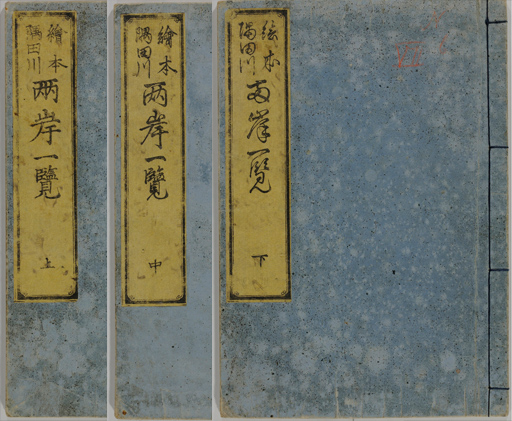 繪本
隅田川
两岸一覽
上
繪本
隅田川
两岸一覽
中
絵本
隅田川
両岸一覧
下